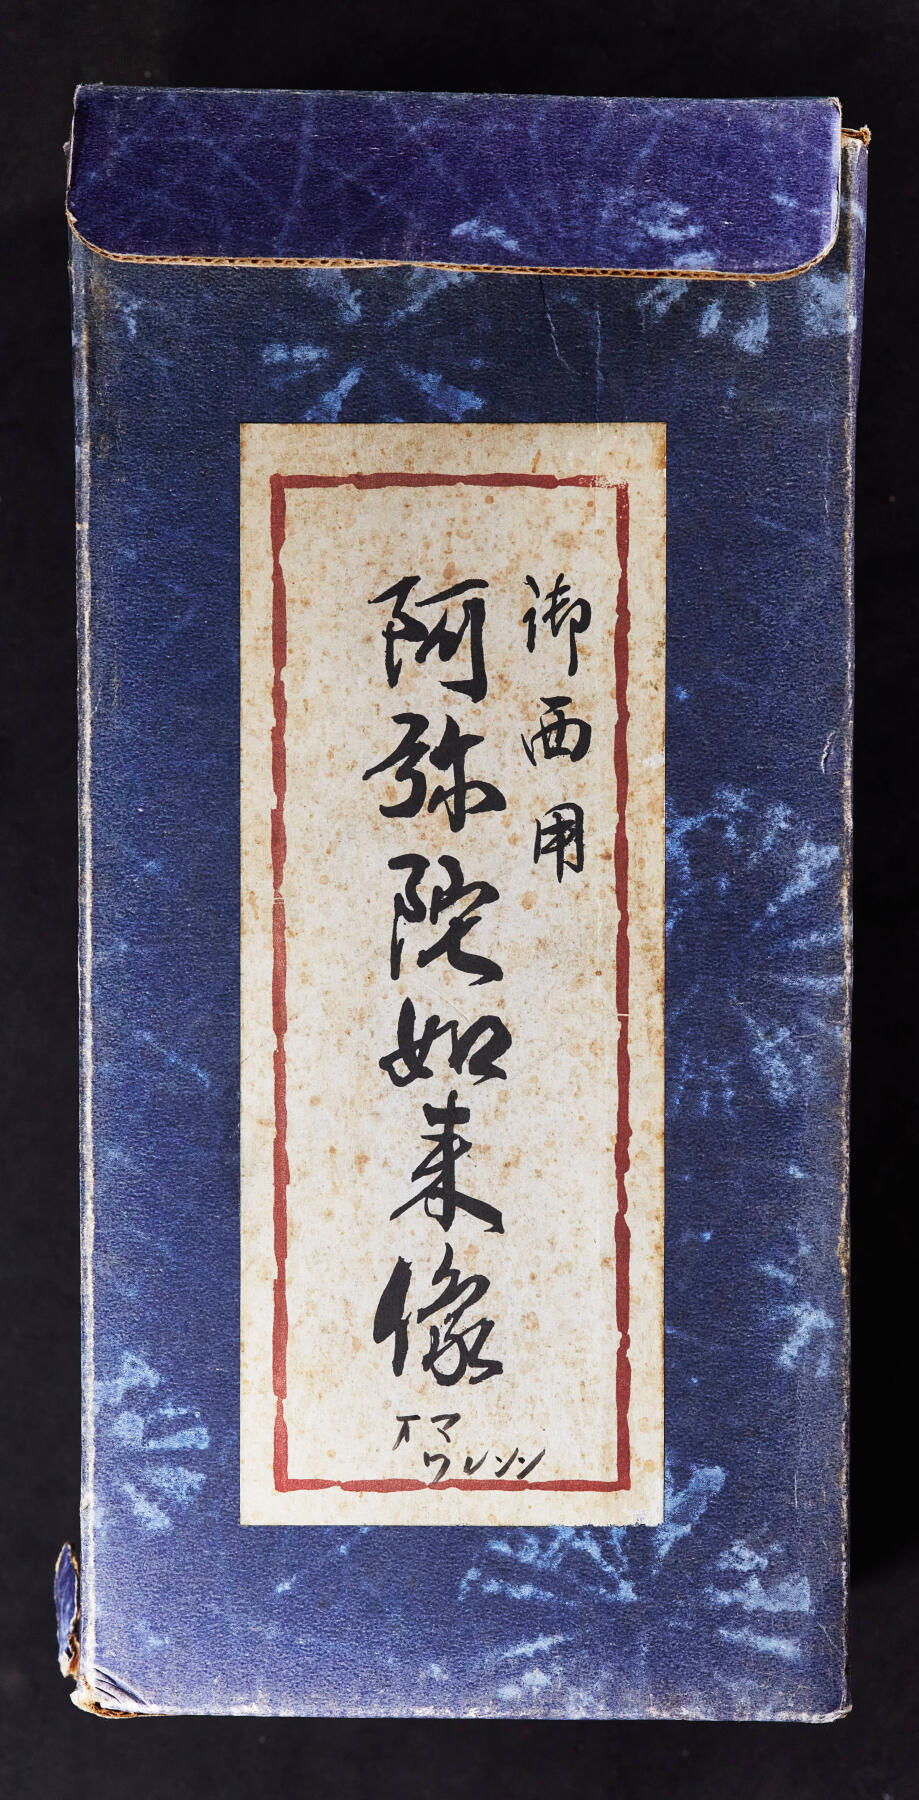 御西用
阿弥陀如来像
オマ
ワレソン